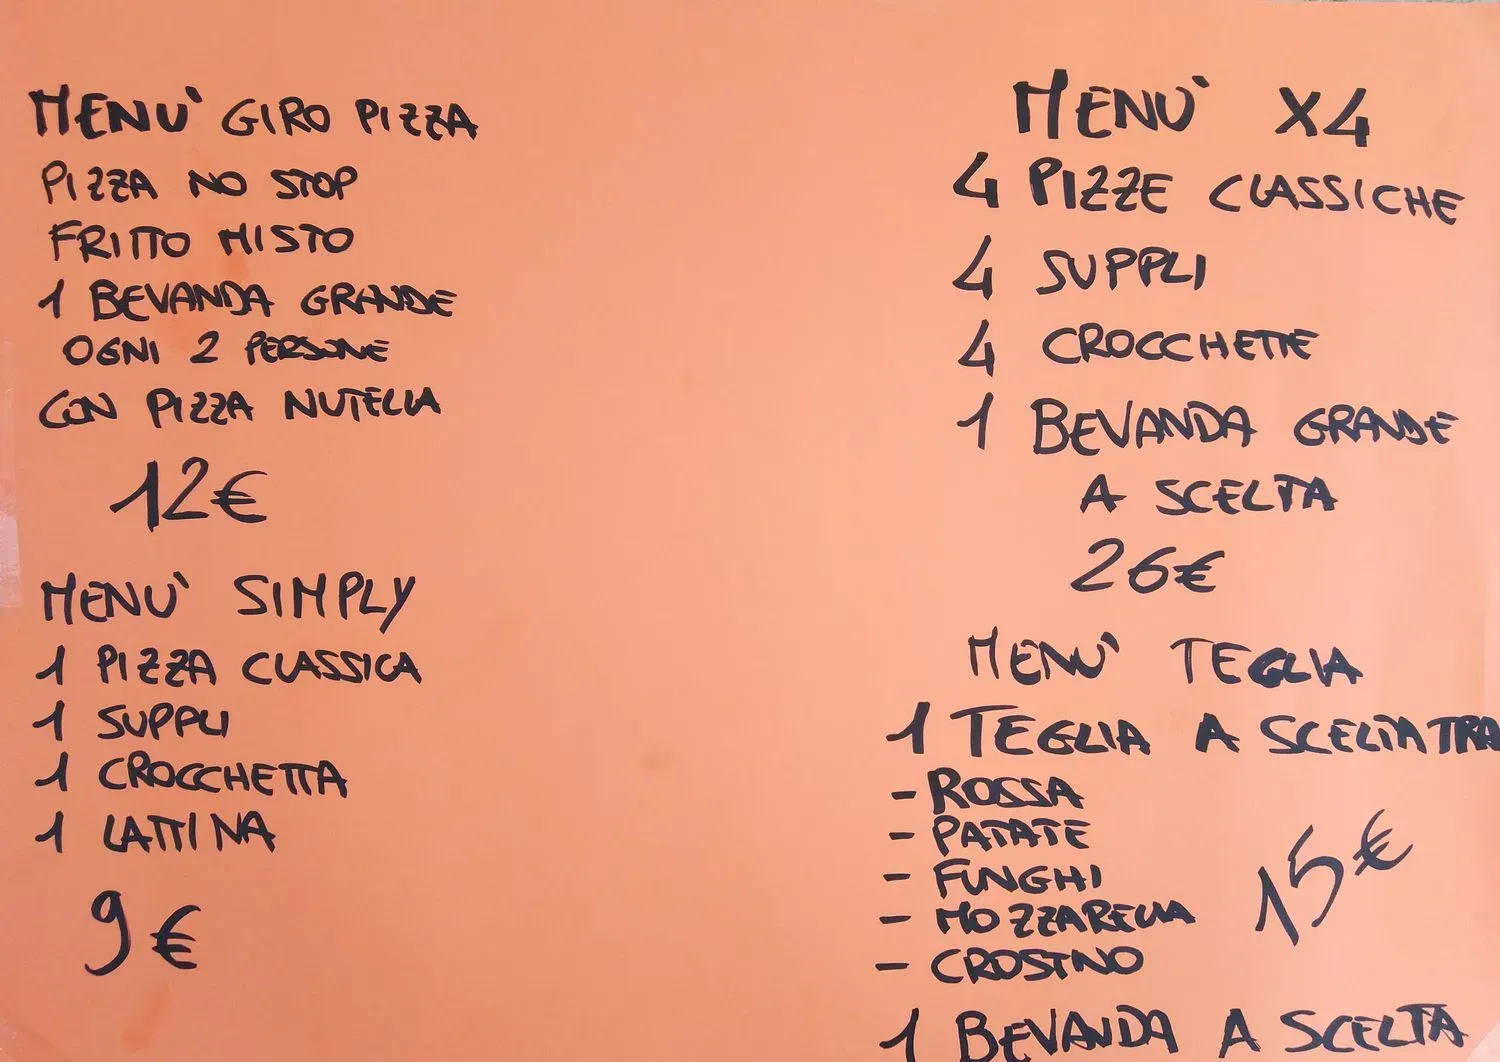 MENU' GIRO PIZZA
PIZZA NO STOP
FRITTO MISTO
1 BEVANDA GRANDE
OGNI 2 PERSONE
CON PIZZA NUTELLA
12€
MENU' SIMPLY
1 PIZZA CLASSICA
1 SUPPLI
1 CROCCHETTA
1 LATTINA
9€
MENU' X4
4 PIZZE CLASSICHE
4 SUPPLI
4 CROCCHETTE
1 BEVANDA GRANDE
A SCELTA
26€
MENU' TEGLIA
1 TEGLIA A SCELTA TRA
- ROSSA
- PATATE
- FUNGHI
- MOZZARELLA
- CROSTINO
15€
1 BEVANDA A SCELTA